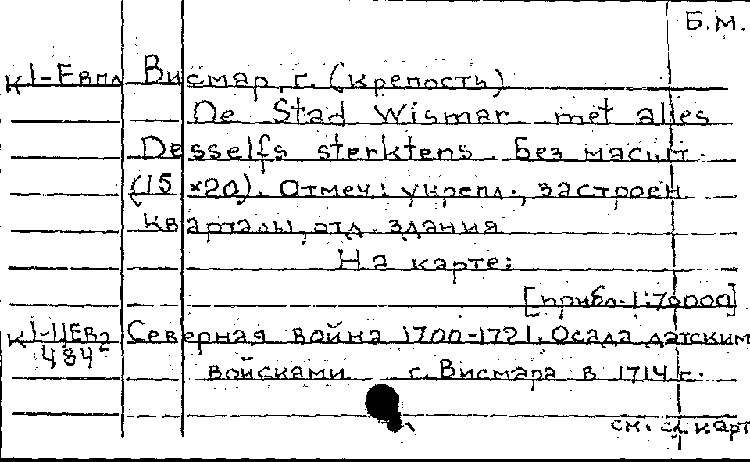 Б.М.
К1-Евпл Висмар, г. (крепость)
De Stad Wismar met alles
Desselfs sterktens. Без масшт.
(15×20). Отмеч.: укрепл., застроен
кварталы, отд. здания
На карте:
[прибл. 1:70000]
Северная война 1700-1721. Осада датским
484
войсками г. Висмара в 1714 г.
см. сл. карт